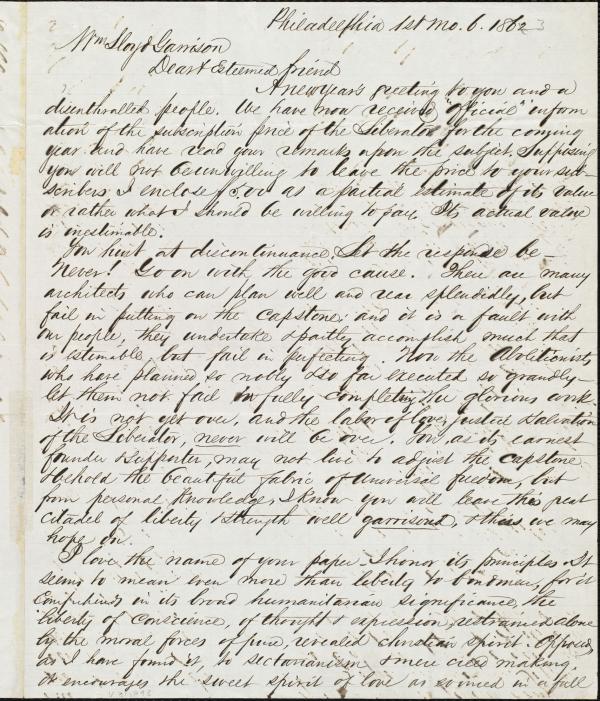 Philadelphia 1st mo. 6. 1862 3
Wm Lloyd Garrison
Dear & Esteemed friend
A new year's greeting to you and a
disenthralled people. We have now received "official" inform
ation of the subscription price of the Liberator for the coming
year and have read your remarks upon the subject. Supposing
you will not be unwilling to leave the price to your sub-
scribers I enclose as a partial estimate of its value
or rather what I should be willing to pay. Its actual value
is inestimable.
You hint at discontinuance. Let the response be -
Never! Go on with the good cause. There are many
architects who can plan well and rear splendidly, but
fail in putting on the capstone. and it is a fault with
our people, they undertake & partly accomplish much that
is estimable, but fail in perfecting. Now the Abolitionists
who have planned so nobly & so far executed so grandly -
let them not fail in fully completing the glorious work.
It is not yet over, and the labor of love, justice & salvation
of the Liberator, never will be over. You, as its earnest
founder & supporter, may not live to adjust the capstone
& behold the beautiful fabric of universal freedom, but
from personal knowledge, I know you will leave this great
citadel of liberty & strength well garrisoned, & thus we may
hope on.
I love the name of your paper - I honor its principles. It
seems to mean even more than liberty to bondmen, for it
comprehends in its broad humanitarian significance, the
liberty of conscience, of thought & expression, restrained alone
by the moral forces of pure, revealed christian spirit. Opposed,
as I have found it, to sectarianism & mere creed making,
it encourages the sweet spirit of love as in a full